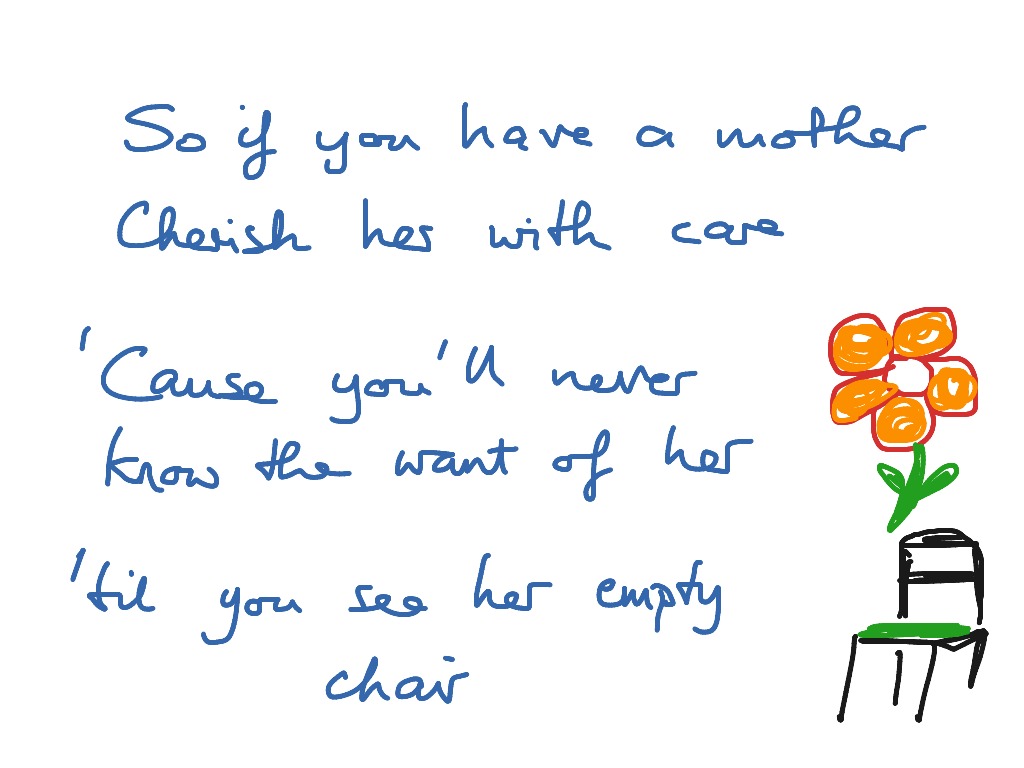 So if you have a mother
Cherish her with care
'Cause you'll never
know the want of her
'til you see her empty
chair